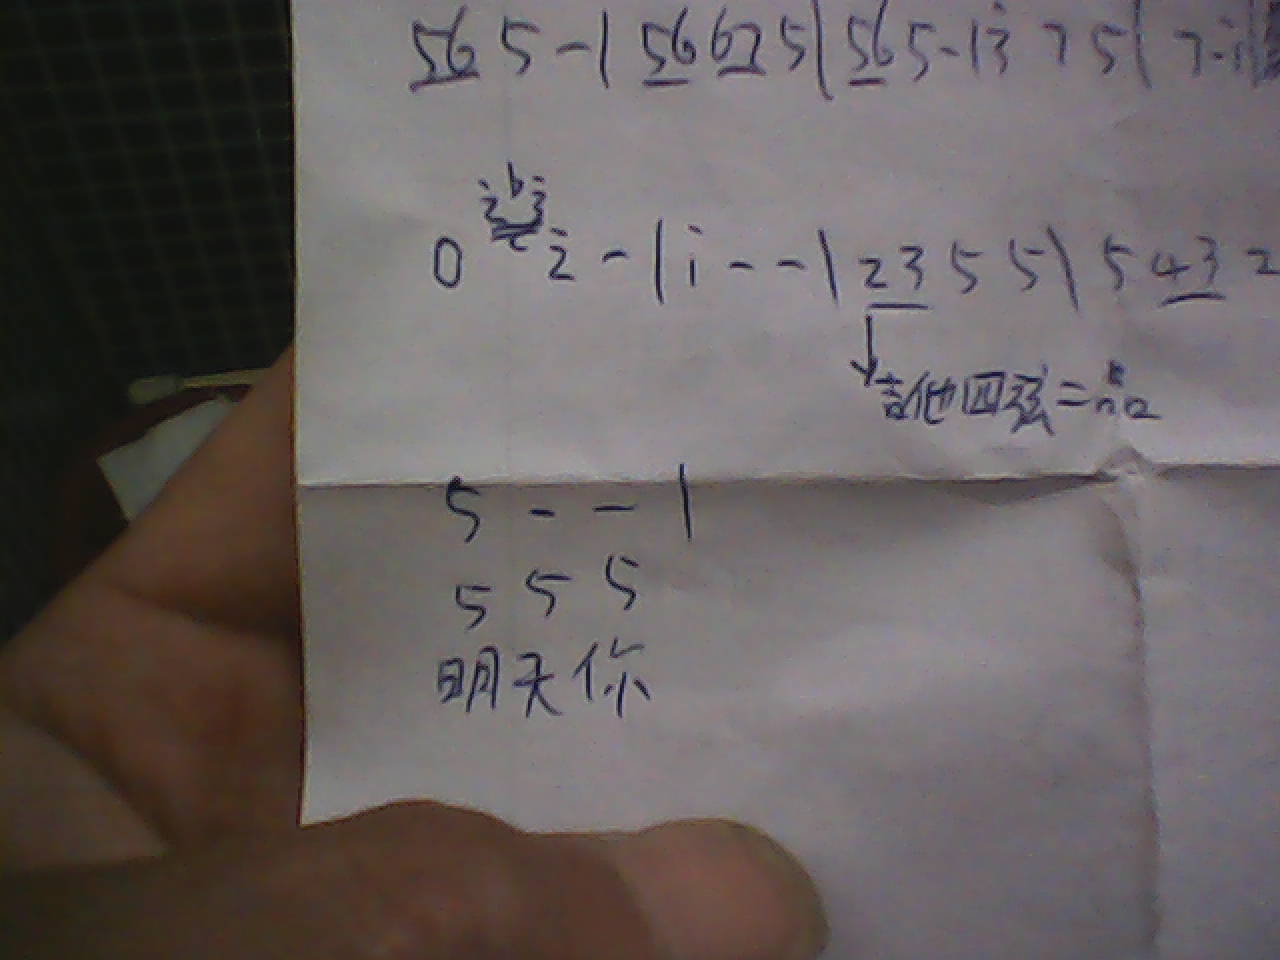 56 5 - | 56 67 5 | 56 5 - | 3̇ 7 5 | 7 - i |
0 2̇ b3̇ 2̇ - | i - - | 23 5 5 | 5 43 2
吉他四弦=品
5 - - |
5 5 5
明天你